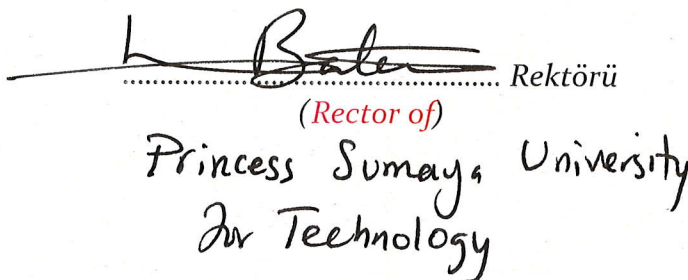 ................................................ Rektörü
(Rector of)
Princess Sumaya University
for Technology